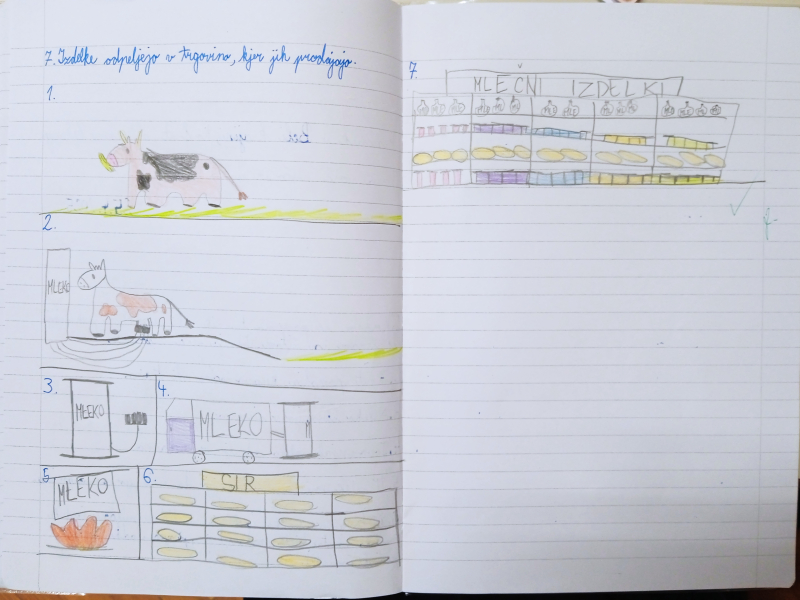 7. Izdelke odpeljejo v trgovino, kjer jih prodajajo.
1.
2.
MLEKO
3.
MLEKO
4.
MLEKO
5.
MLEKO
6.
SIR
7.
MLEČNI IZDELKI